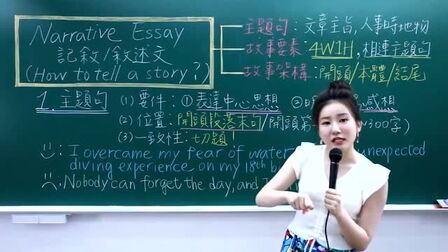 Narrative Essay
記敘/敘述文
(How to tell a story?)
主題句:文章主旨,人事時地物
故事要素:4W1H,相連主題句
故事架構:開頭/本體/結尾
1. 主題句 (1) 要件:①表達中心思想 ② 感想
(2) 位置:開頭段落末句/開頭 300字)
(3) 一致性:切題!
:I overcame my fear of water unexpected
diving experience on my 18th b
:Nobody can forget the day, and